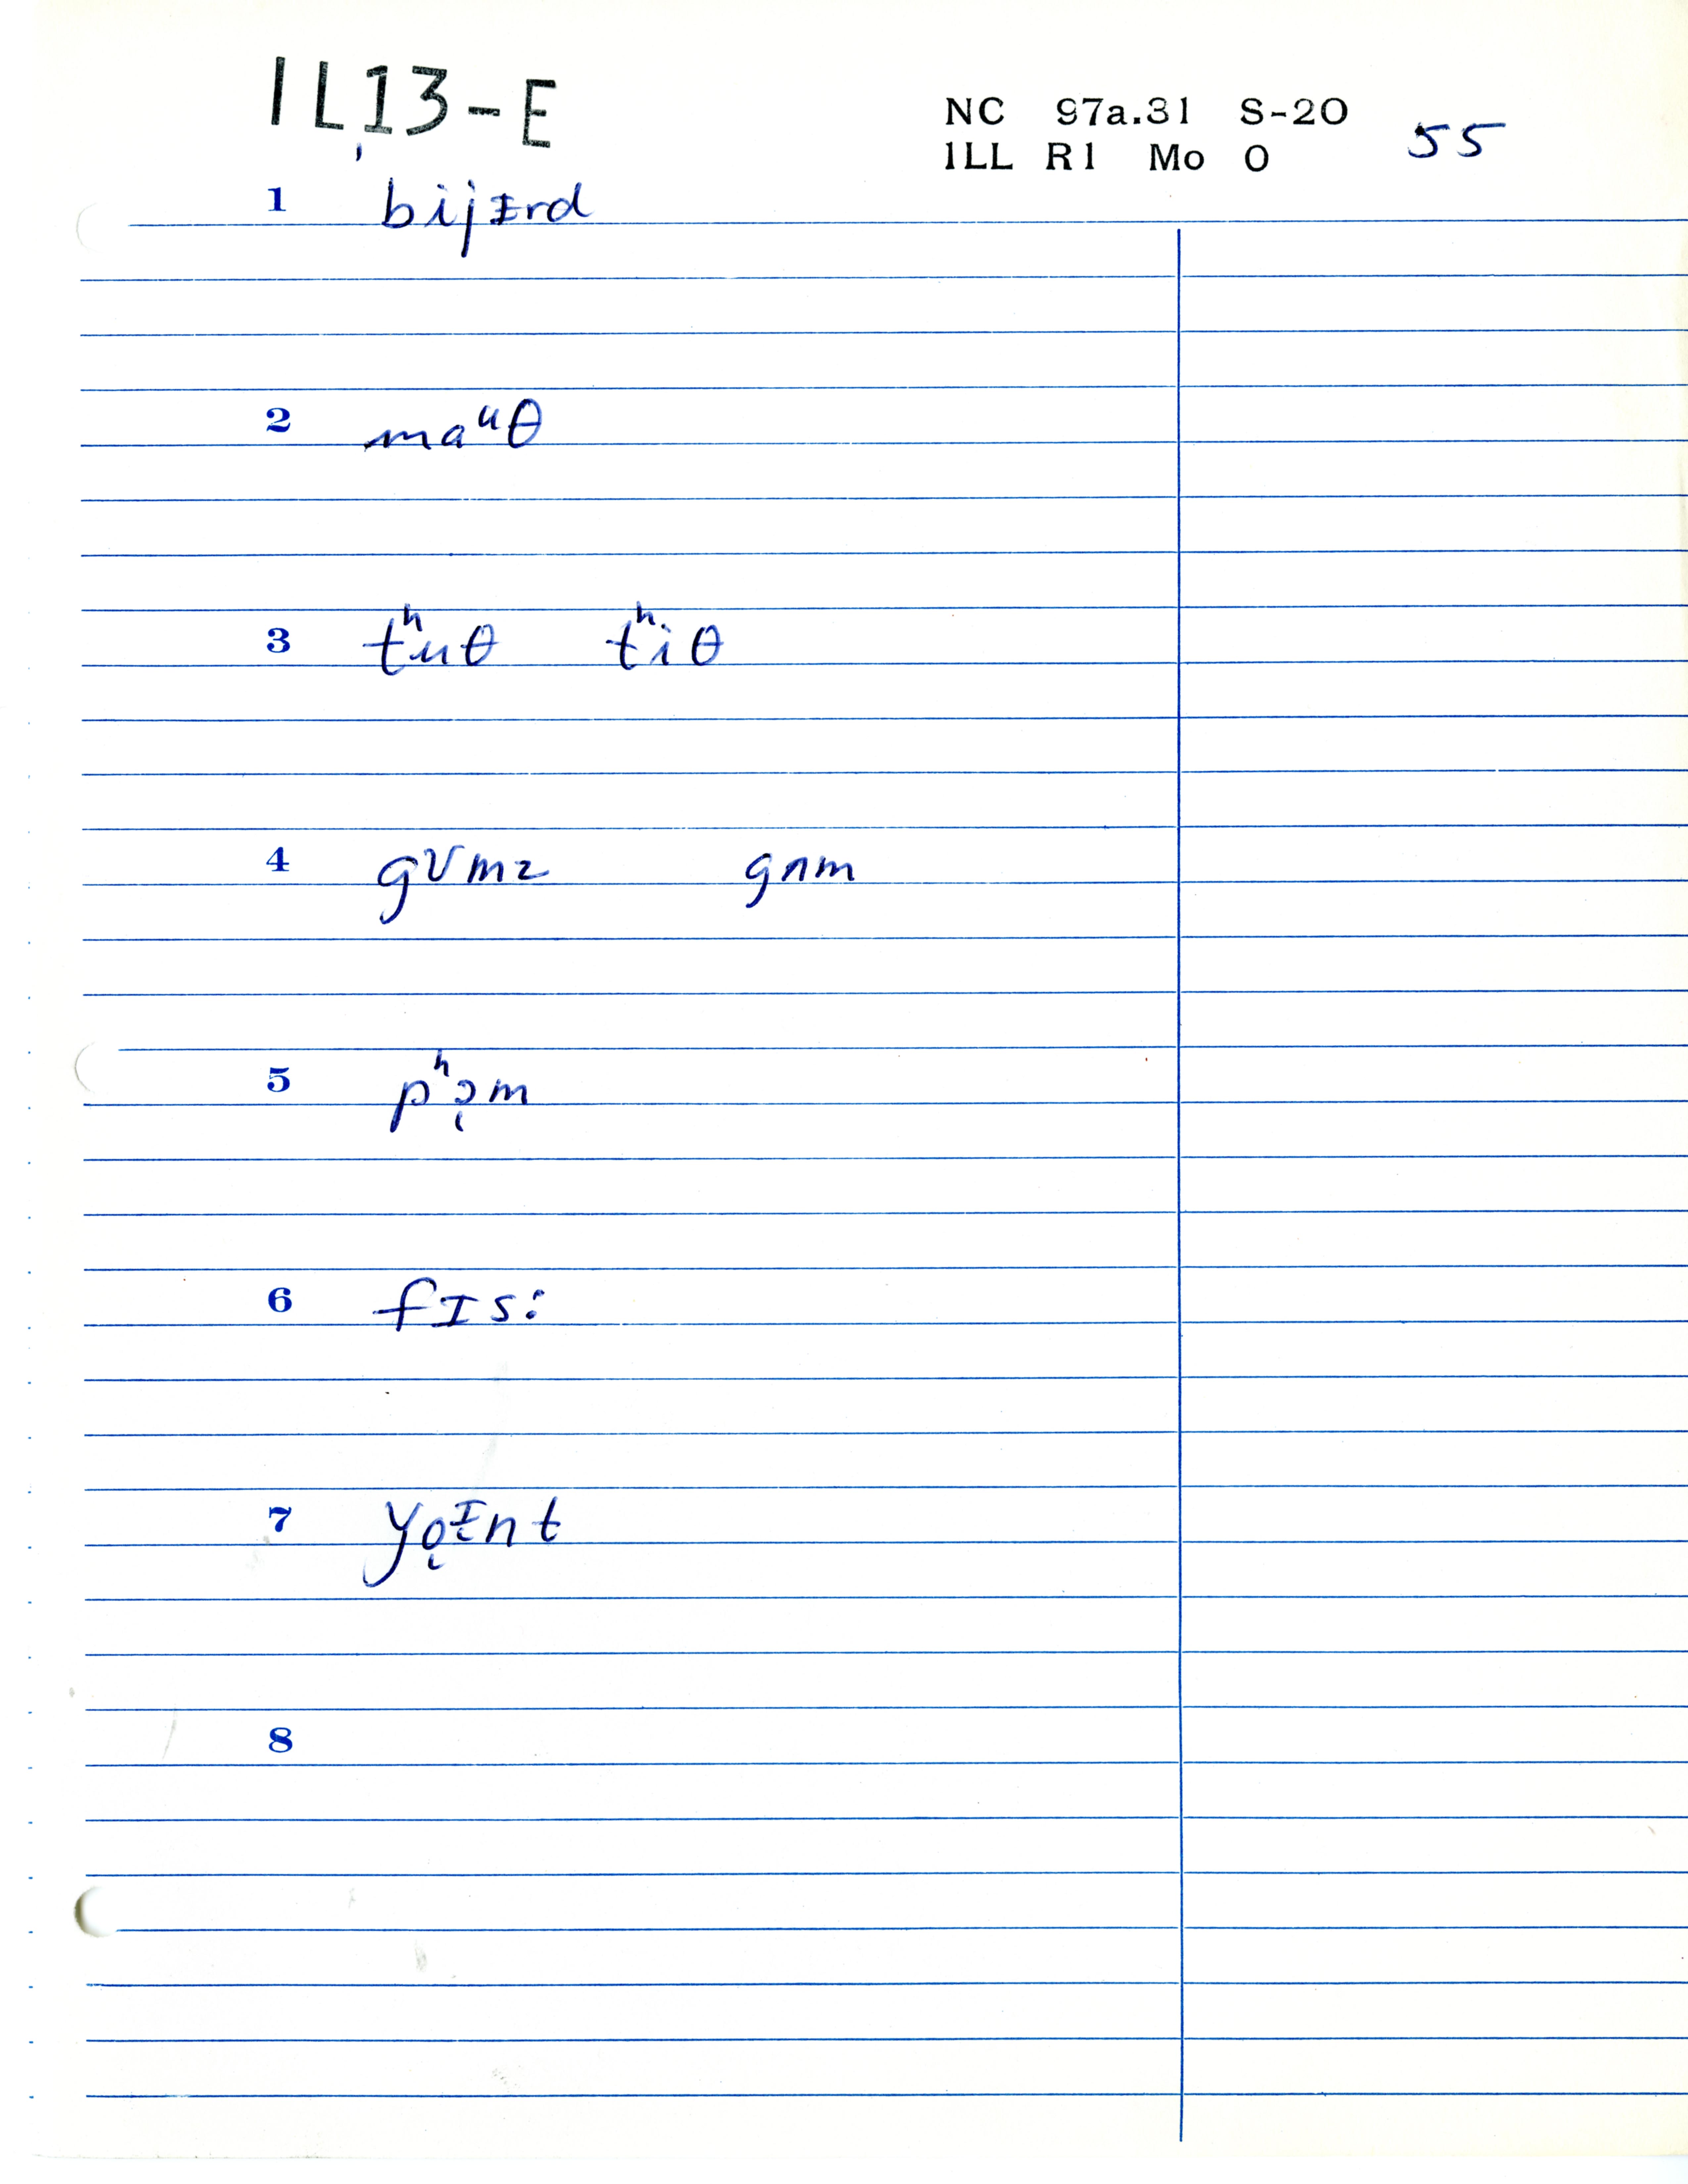 1L,13-E
NC 97a.31 S-20 55
1LL R1 Mo O
1 bijɪ̵rd
2 maᵘθ
3 tʰuθ tʰiθ
4 gʊmz gʌm
5 pʰɔ̜m
6 fɪs:
7 yo̜ᵻnt
8